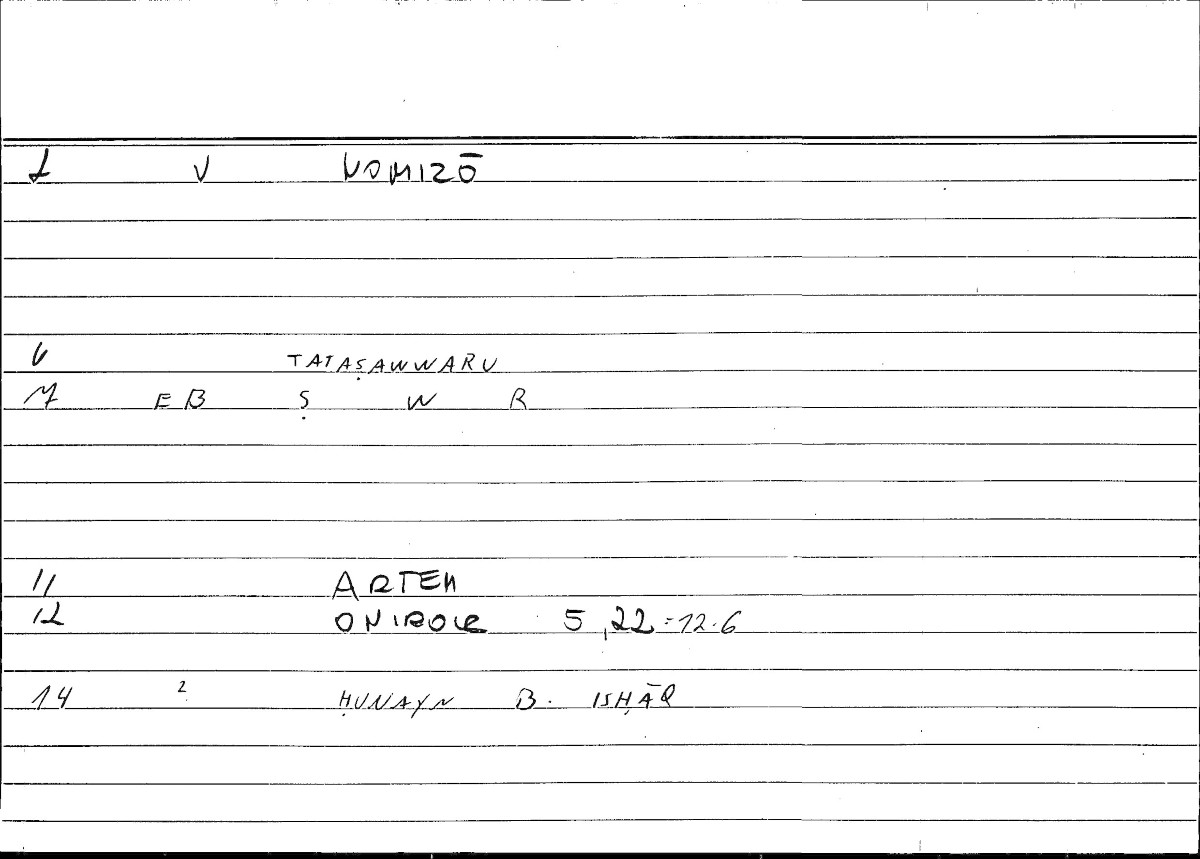 1 V NOMIZŌ
6 TATAṢAWWARU
7 EB Ṣ W R
11 ARTEM
12 ONIROCR 5,22 = 12.6
14 2 ḤUNAYN B. ISḤĀQ